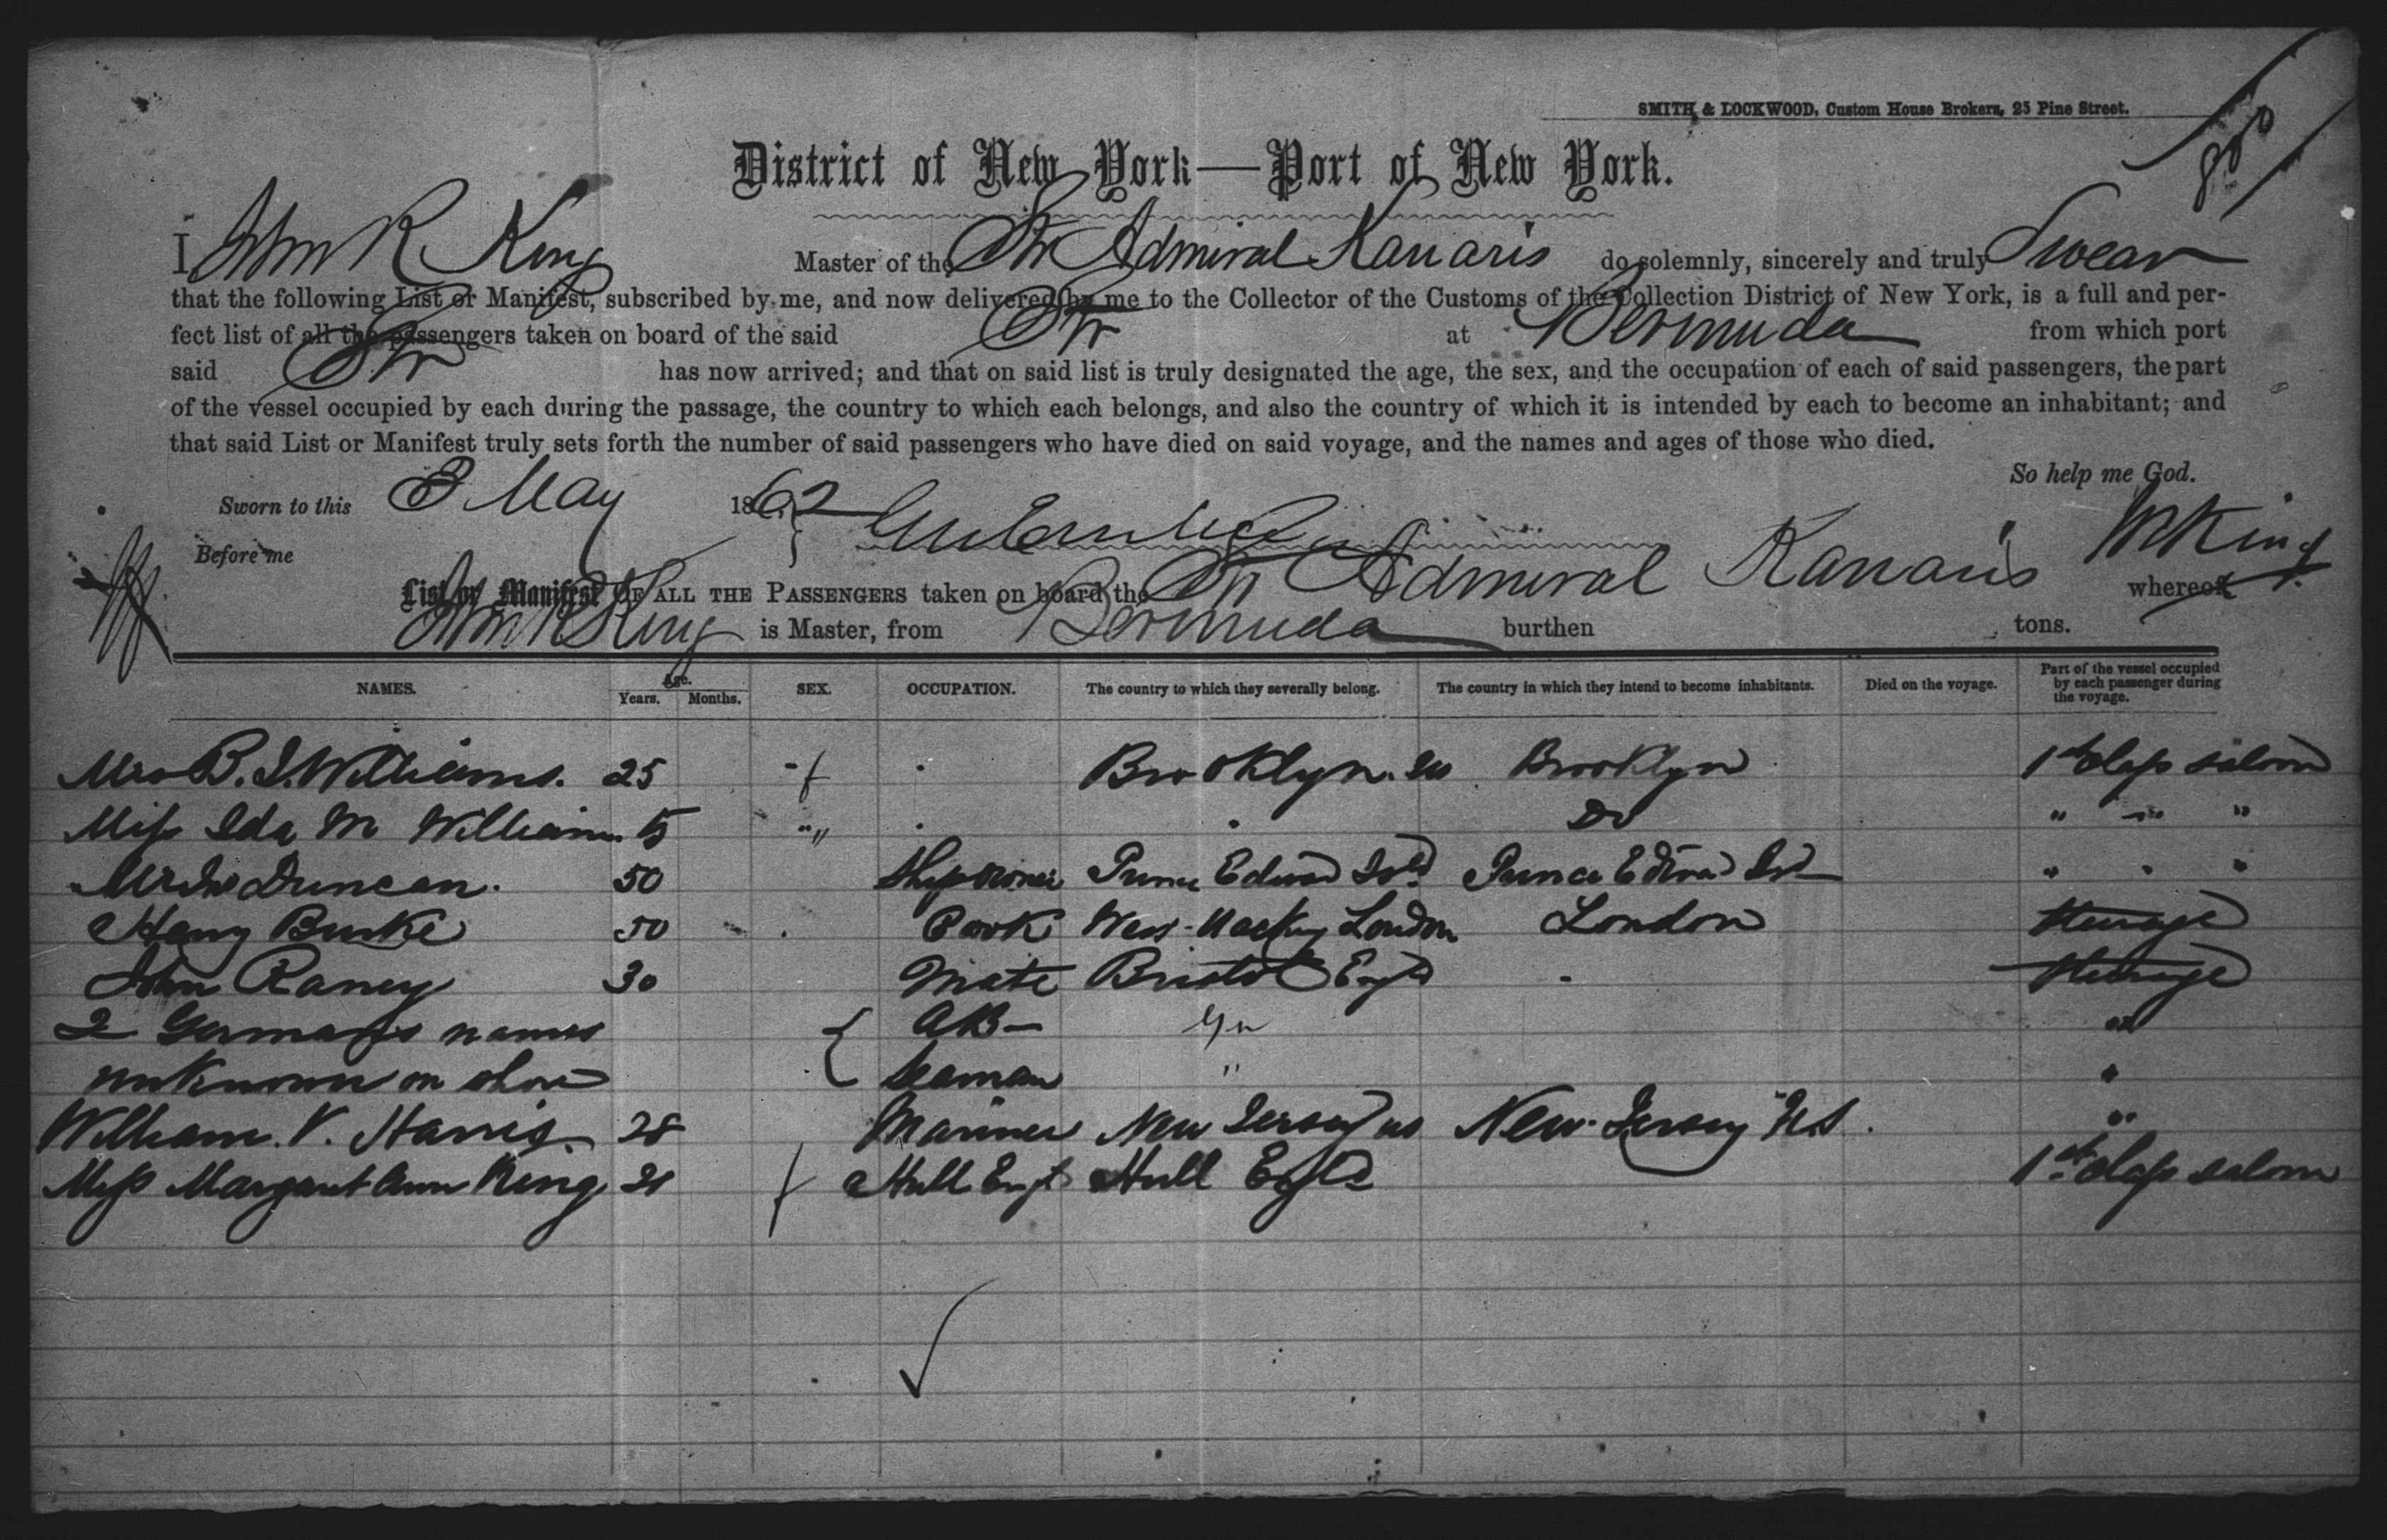 SMITH & LOCKWOOD, Custom House Brokers, 25 Pine Street.
District of New York—Port of New York.
I John R King Master of the Str Admiral Kanaris do solemnly, sincerely and truly Swear
that the following List or Manifest, subscribed by me, and now delivered by me to the Collector of the Customs of the Collection District of New York, is a full and per-
fect list of all the passengers taken on board of the said Str at Bermuda from which port
said Str has now arrived; and that on said list is truly designated the age, the sex, and the occupation of each of said passengers, the part
of the vessel occupied by each during the passage, the country to which each belongs, and also the country of which it is intended by each to become an inhabitant; and
that said List or Manifest truly sets forth the number of said passengers who have died on said voyage, and the names and ages of those who died.
So help me God.
Sworn to this 3 May 1862
Before me
King
List or Manifest OF ALL THE PASSENGERS taken on board the Str Admiral Kanaris whereof
John R King is Master, from Bermuda burthen tons.
NAMES. Age. Years. Months. SEX. OCCUPATION. The country to which they severally belong. The country in which they intend to become inhabitants. Died on the voyage. Part of the vessel occupied by each passenger during the voyage.
Mrs B. I. Williams. 25 f Brooklyn. Brooklyn 1st class saloon
Miss Ida M Williams 15 " Do " " "
Duncan. 50 Shipowner Prince Edward Isld Prince Edward Isd " " "
Henry Burke 50 Cook London London Steerage
John Raney 30 Mate Bristol Engd Steerage
2 Germans names { AB "
unknown on shore Seaman " "
William. V. Harris 28 Mariner New Jersey us New Jersey U.S. "
Miss Margaret Ann King 21 f Hull Engd Hull Engld 1st class saloon